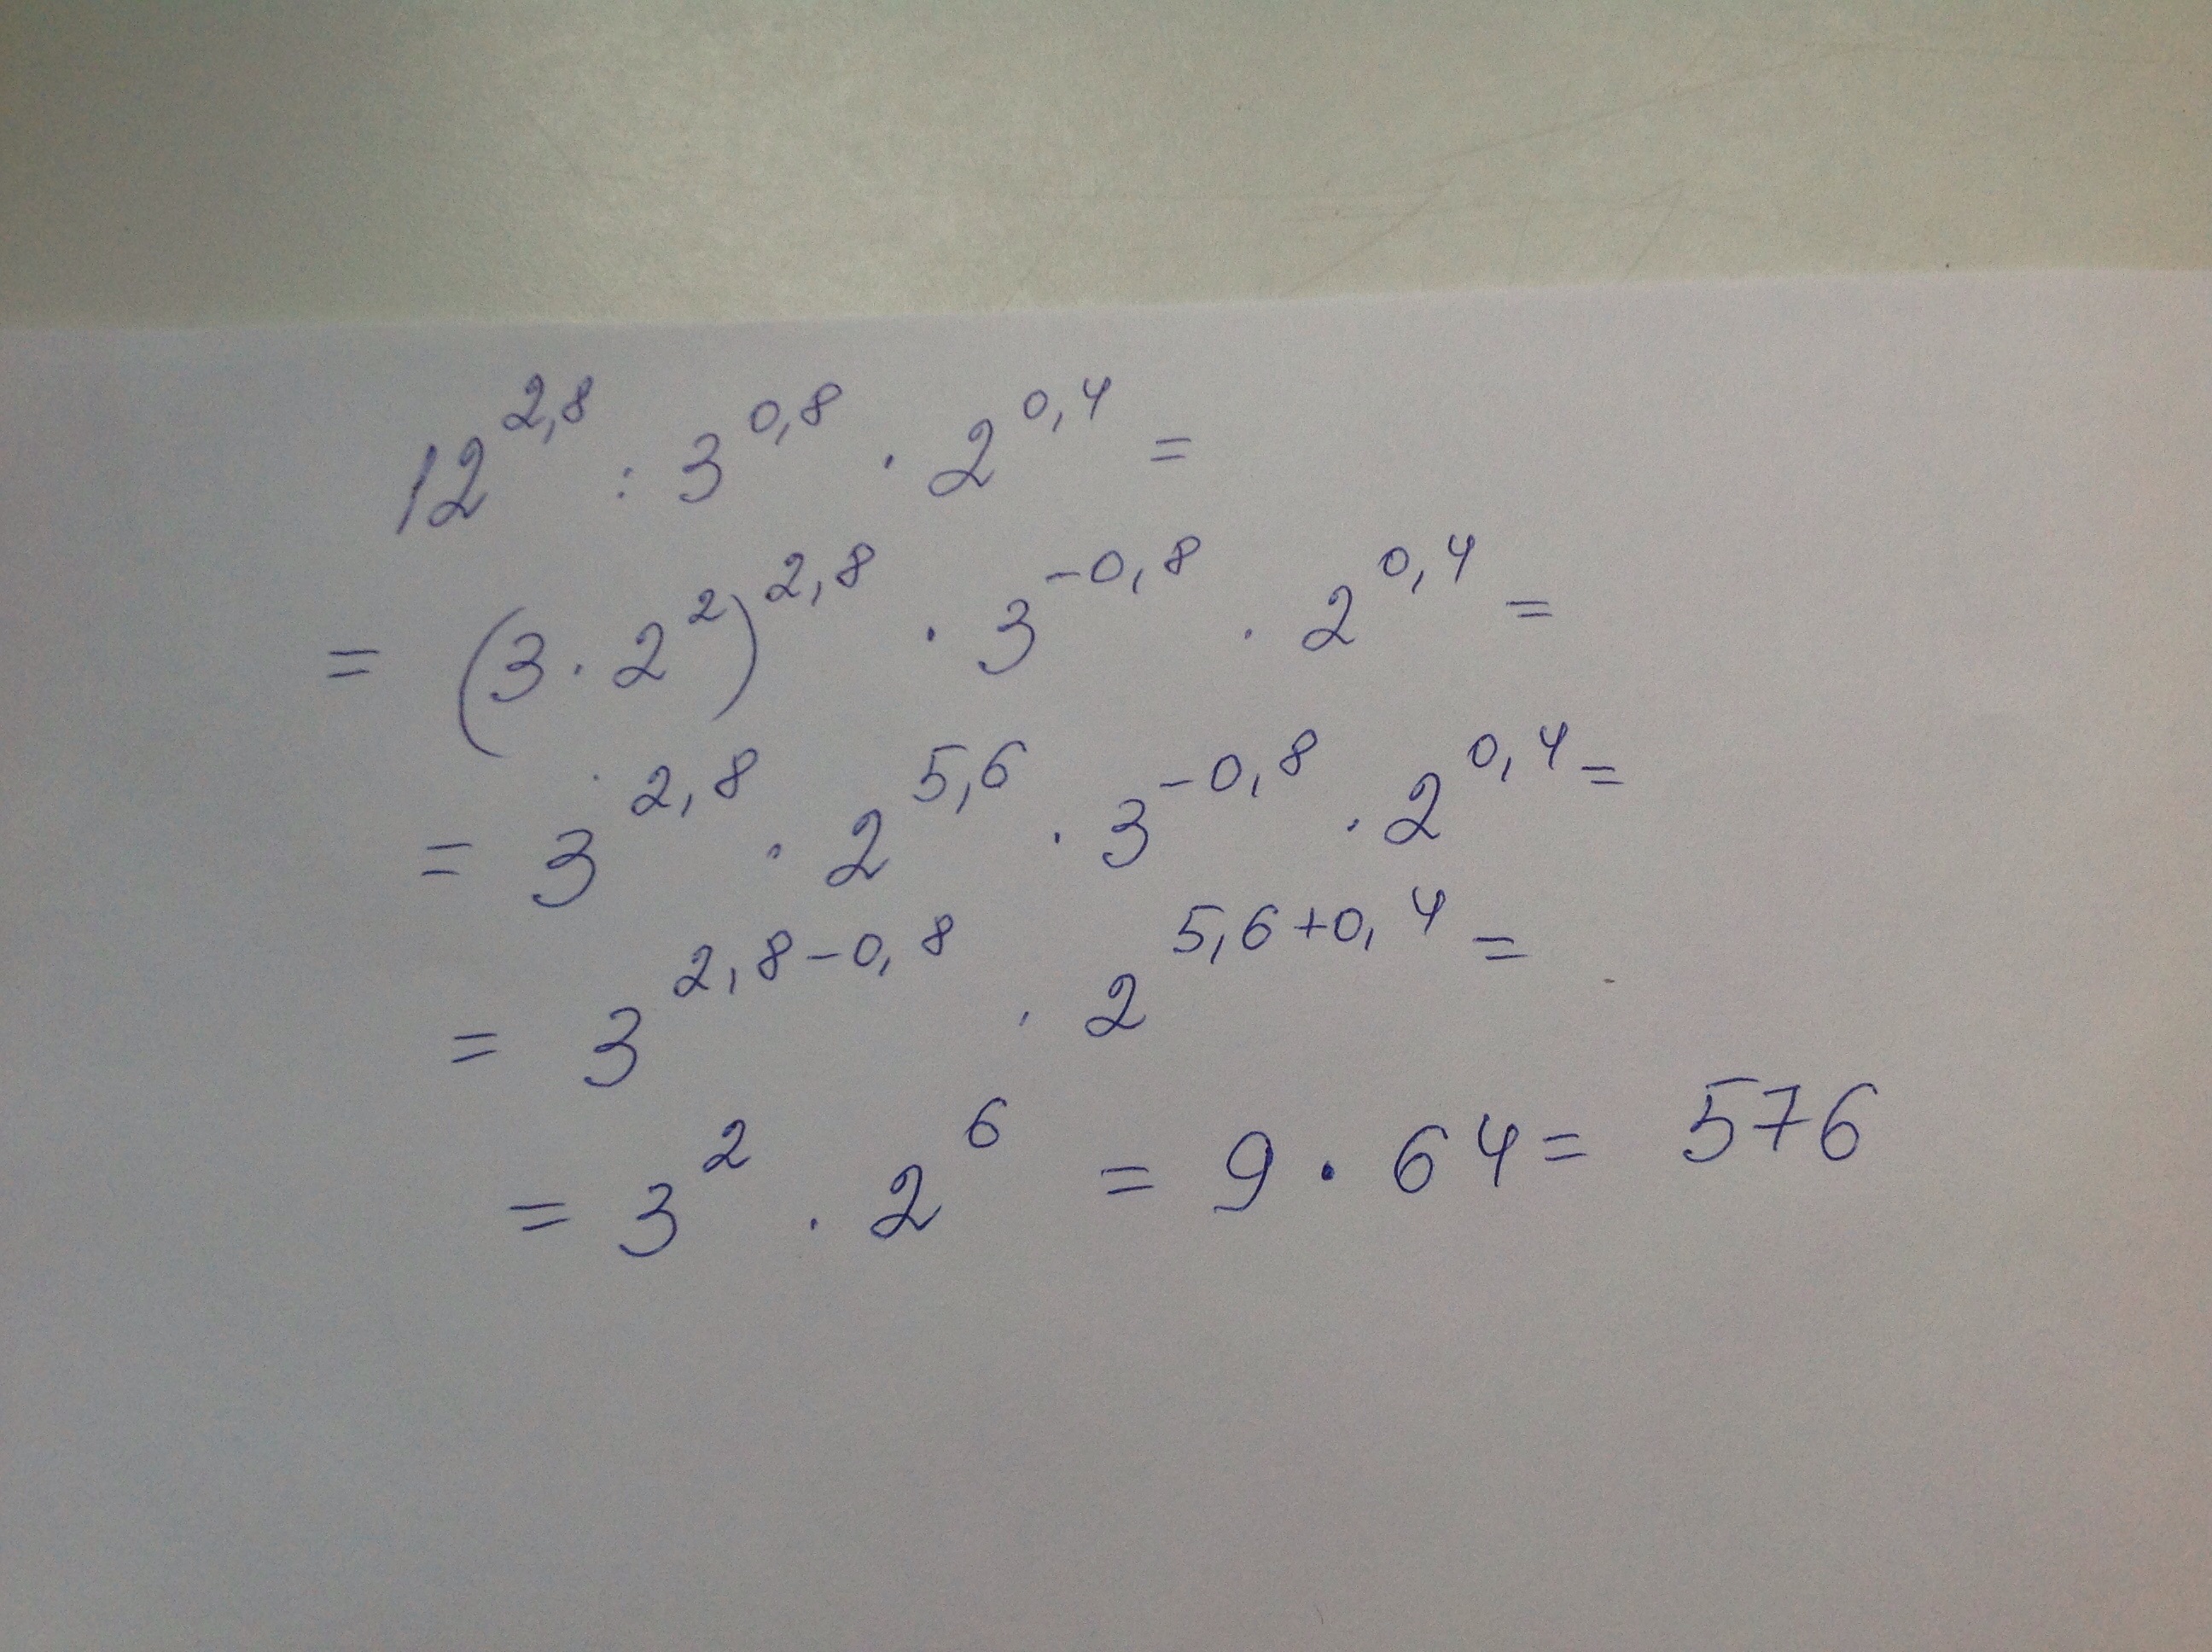 12^2,8 : 3^0,8 · 2^0,4 =
= (3 · 2^2)^2,8 · 3^-0,8 · 2^0,4 =
= 3^2,8 · 2^5,6 · 3^-0,8 · 2^0,4 =
= 3^2,8-0,8 · 2^5,6+0,4 =
= 3^2 · 2^6 = 9 · 64 = 576